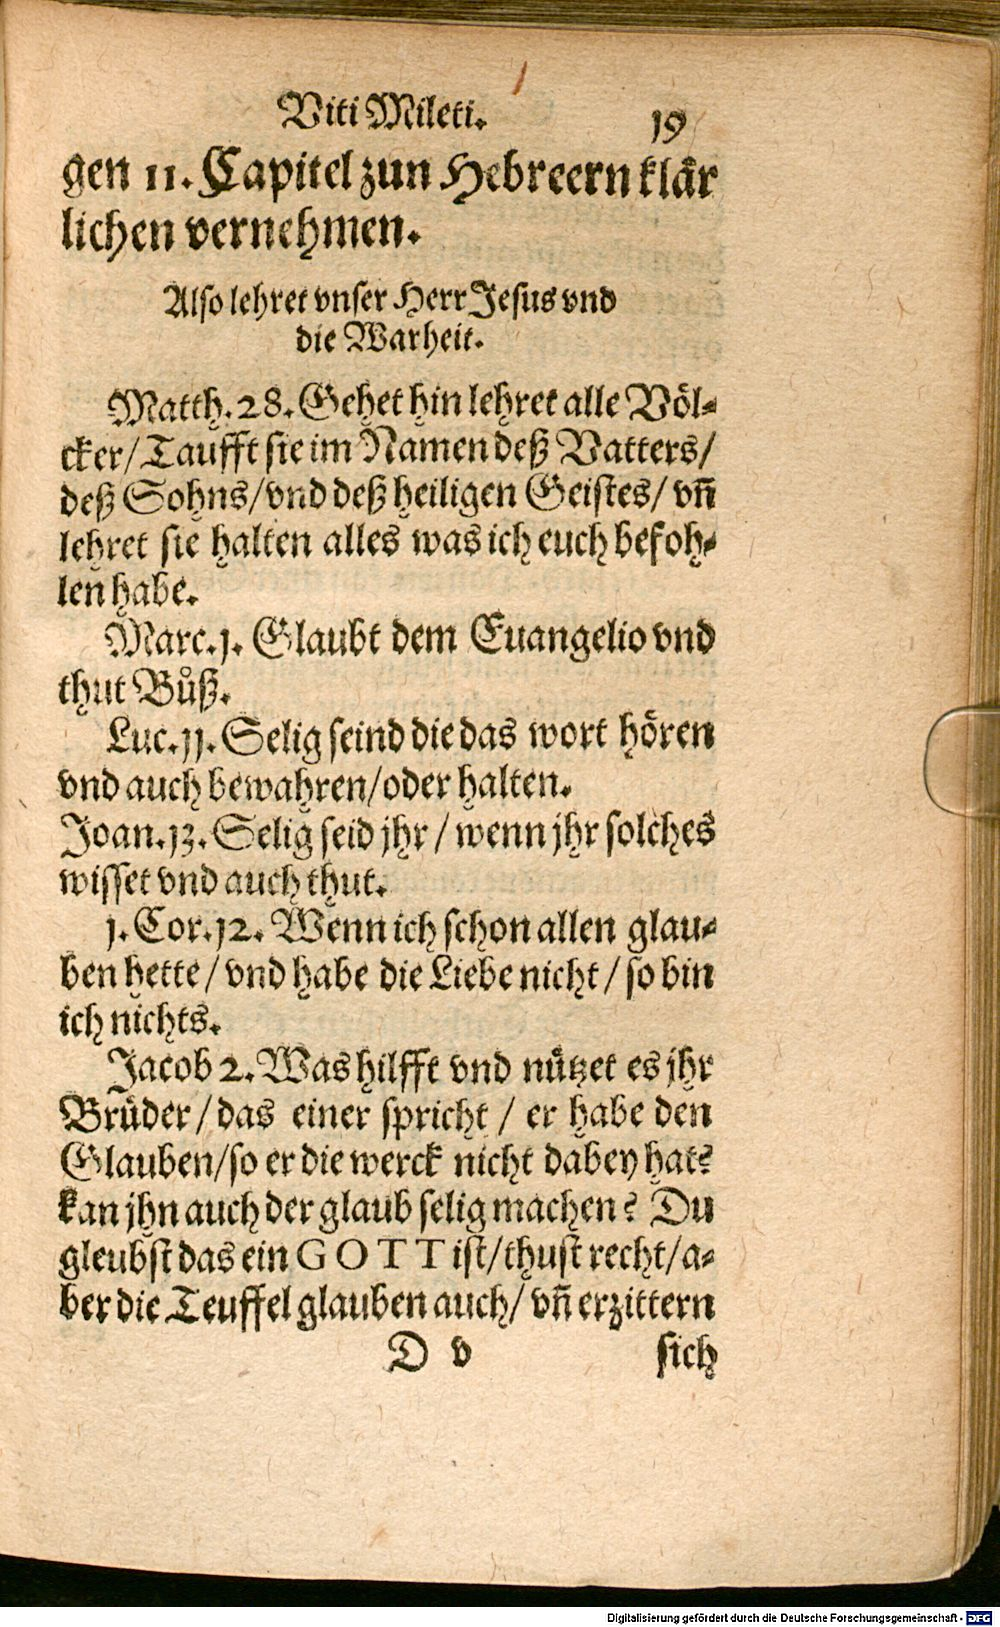 Viti Mileti. 19
gen 11. Capitel zun Hebreern klär
lichen vernehmen.
Also lehret vnser Herr Jesus vnd
die Warheit.
Matth. 28. Gehet hin lehret alle Völ-
cker/ Taufft sie im Namen deß Vatters/
deß Sohns/ vnd deß heiligen Geistes/ vn̄
lehret sie halten alles was ich euch befoh-
len habe.
Marc. 1. Glaubt dem Euangelio vnd
thut Bůß.
Luc. 11. Selig seind die das wort hören
vnd auch bewahren/ oder halten.
Joan. 13. Selig seid jhr / wenn jhr solches
wisset vnd auch thut.
1. Cor. 12. Wenn ich schon allen glau-
ben hette / vnd habe die Liebe nicht / so bin
ich nichts.
Jacob 2. Was hilfft vnd nützet es jhr
Brüder / das einer spricht / er habe den
Glauben/ so er die werck nicht dabey hat?
kan jhn auch der glaub selig machen? Du
gleubst das ein GOTT ist/ thust recht/ a-
ber die Teuffel glauben auch/ vn̄ erzittern
D v sich
Digitalisierung gefördert durch die Deutsche Forschungsgemeinschaft - DFG